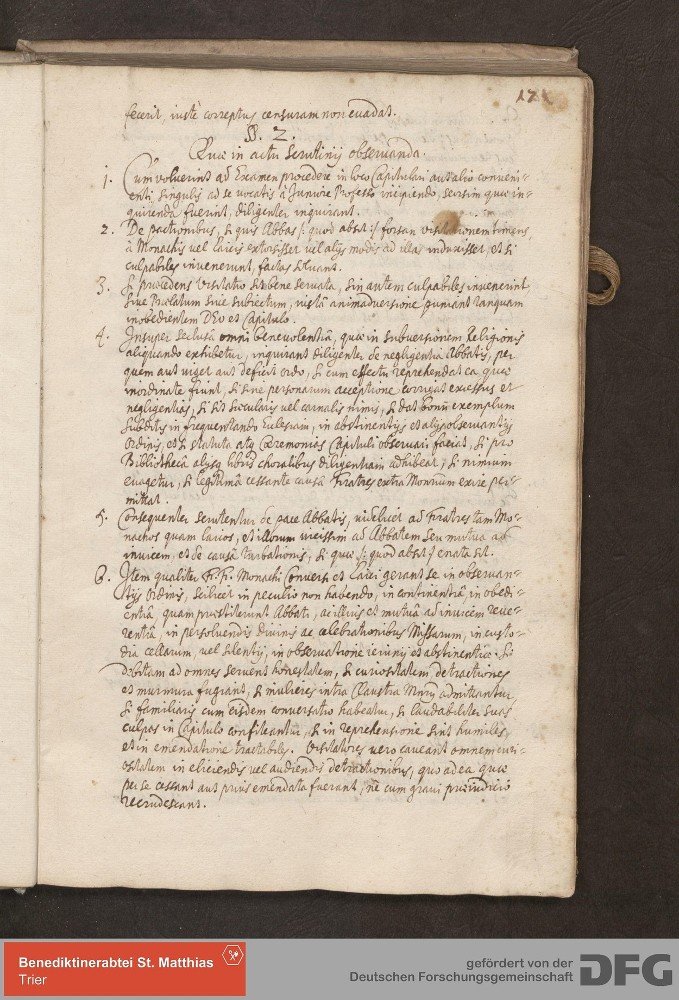 174
fecerit, iustè correptus censuram non euadat.
§. 2.
Quae in actu Scrutinij obseruanda.
1. Cum voluerint ad Examen procedere in loco Capitulari aut alio conueni-
enti singulis ad se vocatis à Juniore Professo incipiendo, seorsim quae in-
quirenda fuerint, diligenter inquirant.
2. De pactionibus, si quis Abbas /: quod absit :/ forsan visitationem timens,
à Monachis vel Laicis extorsisset vel alijs modis ad illa induxisset, et si
culpabiles inuenerunt, factas soluant.
3. Si praecedens Visitatio sit bene seruata, sin autem culpabiles inuenerint
siue Praelatum siue subiectum, iustâ animaduersione puniant tanquam
inobedientem DEO et Capitulo.
4. Insuper seclusâ omni beneuolentiâ, quae in subuersionem Religionis
aliquando exhibetur, inquirant diligenter de negligentiâ Abbatis, per
quem aut viget aut deficit ordo, si cum effectu reprehendat ea quae
inordinate fiunt, si sine personarum acceptione corrigat excessus et
negligentias, si sit saecularis vel carnalis nimis, si dat bonum exemplum
subditis in frequentando Ecclesiam, in abstinentijs et alijs obseruantijs
Ordinis, et si statuta atque Caeremonias Capituli obseruari faciat, si pro
Bibliothecâ alijsque libris choralibus diligentiam adhibeat, si nimium
euagetur, si legitimâ cessante causâ Fratres extra Monrium exire per-
mittat.
5. Consequenter scrutentur de pace Abbatis, videlicet ad Fratres tam Mo-
nachos quam laicos, et illorum vicissim ad Abbatem seu mutua ad
inuicem, et de causâ turbationis, si quae /: quod absit :/ enata sit.
6. Item qualiter F. F. Monachi Conuersi et Laici gerant se in obseruan-
tijs Ordinis, scilicet in peculio non habendo, in continentiâ, in obedi-
entiâ, quam praestiterunt Abbati, ac illius et mutuâ ad inuicem reue-
rentiâ, in persoluendis diuinis ac celebrationibus Missarum, in custo-
dia cellarum, vel silentij, in obseruatione ieiunij et abstinentiae. Si
debitam ad omnes seruent honestatem, si curiositatem detractiones
et murmura fugiant, si mulieres intra Claustra Mnrij admittantur
si familiaris cum eisdem conuersatio habeatur, si laudabiliter suas
culpas in Capitulo confiteantur, si in reprehensione sint humiles,
et in emendatione tractabiles. Visitatores vero caueant omnem curi-
ositatem in eliciendis vel audiendis detractionibus, quo ad ea quae
per se cessant aut prius emendata fuerant, ne cum graui praeiudicio
recrudescant.
Benediktinerabtei St. Matthias
Trier
gefördert von der
Deutschen Forschungsgemeinschaft
DFG